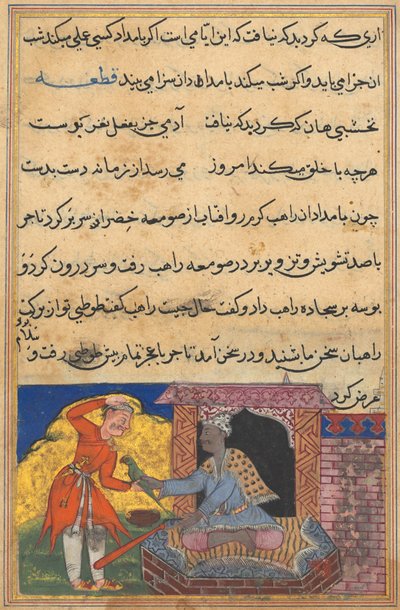 اری که کرد بد که نیافت که این ایامی است اکر بامداد کسی عملی میکند شب
ان جزا می یابد و اکر شب میکند بامدادان سزا می بیند قطعه
نخشبی هان که کرد بد که نیافت آدمی جز بفعل نغز نکوست
هرچه با خلق میکند امروز می رسد از زمانه دست بدست
چون بامدادان راهب کرم رو افتاب از صومعه خضر ان سر بر کرد تاجر
باصد تشویش و تزویر بر در صومعه راهب رفت و سر درون کرد و
بوسه بر سجاده راهب داد و کفت حال چیست راهب کفت طوطی تو از برکت
راهبان سخن ما شنید و در سخن آمد تاجر با عجز تمام پیش طوطی رفت و
عرض کرد